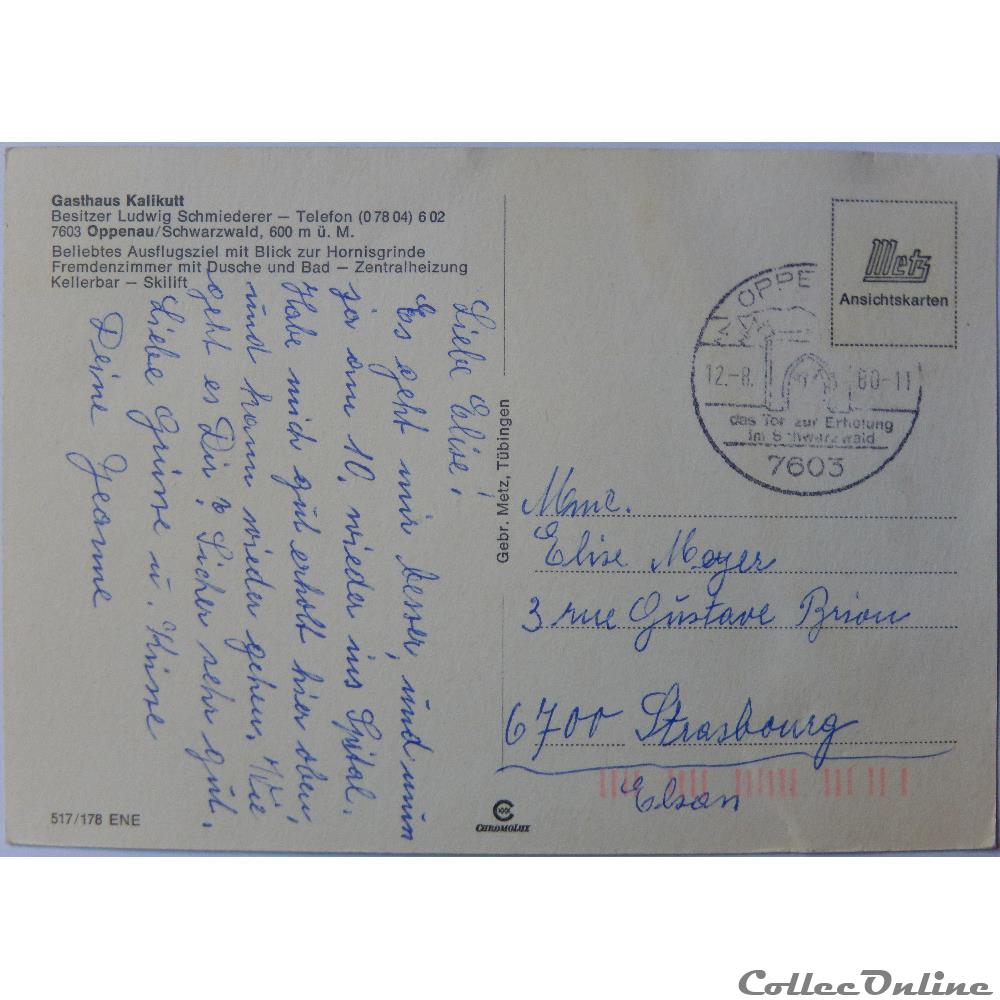 Gasthaus Kalikutt
Besitzer Ludwig Schmiederer – Telefon (0 78 04) 6 02
7603 Oppenau/Schwarzwald, 600 m ü. M.
Beliebtes Ausflugsziel mit Blick zur Hornisgrinde
Fremdenzimmer mit Dusche und Bad – Zentralheizung
Kellerbar – Skilift
Liebe Elise!
Es geht mir besser, und nun
am 10. wieder ins Spital.
Habe mich gut erholt hier oben,
und kann wieder gehen. Wie
geht es Dir? Sicher sehr gut.
Liebe Grüsse u. Küsse
Deine Jeanne
517/178 ENE
Gebr. Metz, Tübingen
CHROMOLUX
Metz
Ansichtskarten
OPPE
12.-8. 80-11
das Tor zur Erholung
im Schwarzwald
7603
Mme.
Elise Meyer
3 rue Gustave Brion
6700 Strasbourg
Elsan
CollecOnline